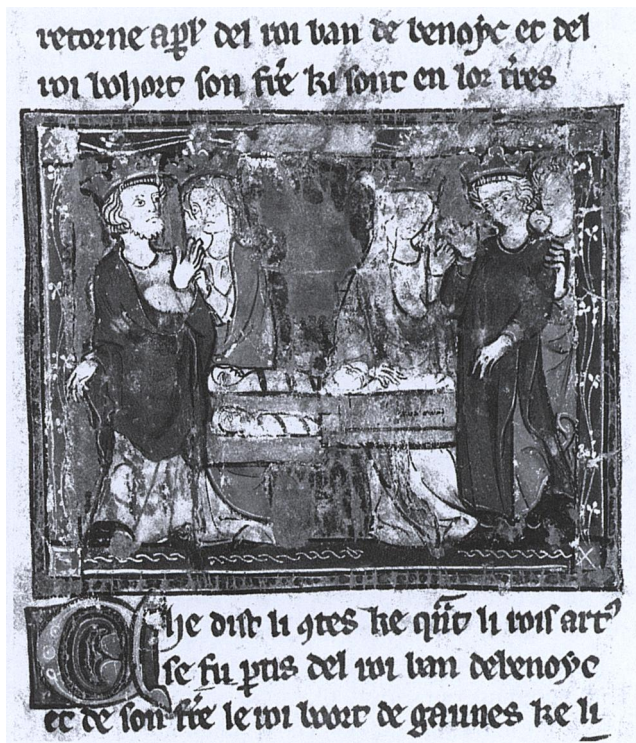 retorne apl' del roi ban de benoyc et del
roi bohort son fre ki sont en lor tres
Che dist li 9tes ke qnt li rois art9
se fu ptis del roi ban debenoyc
et de son fre le roi boort de gaunes ke li